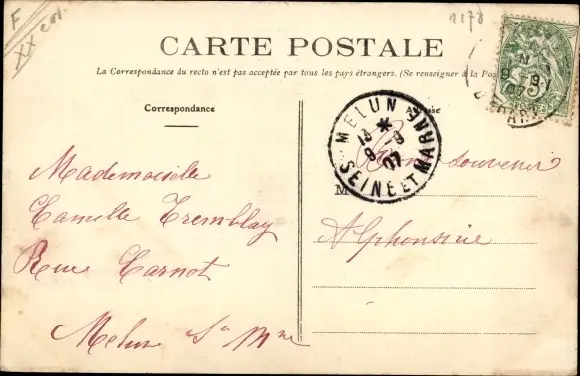 F
XX
2178
CARTE POSTALE
La Correspondance du recto n'est pas acceptée par tous les pays étrangers. (Se renseigner à la Pos
Correspondance
Adresse
MELUN
SEINE ET MARNE
07
Mademoiselle
Camille Tremblay
Rue Carnot
Melun Sne Mne
Bon souvenir
M
Alphonsine